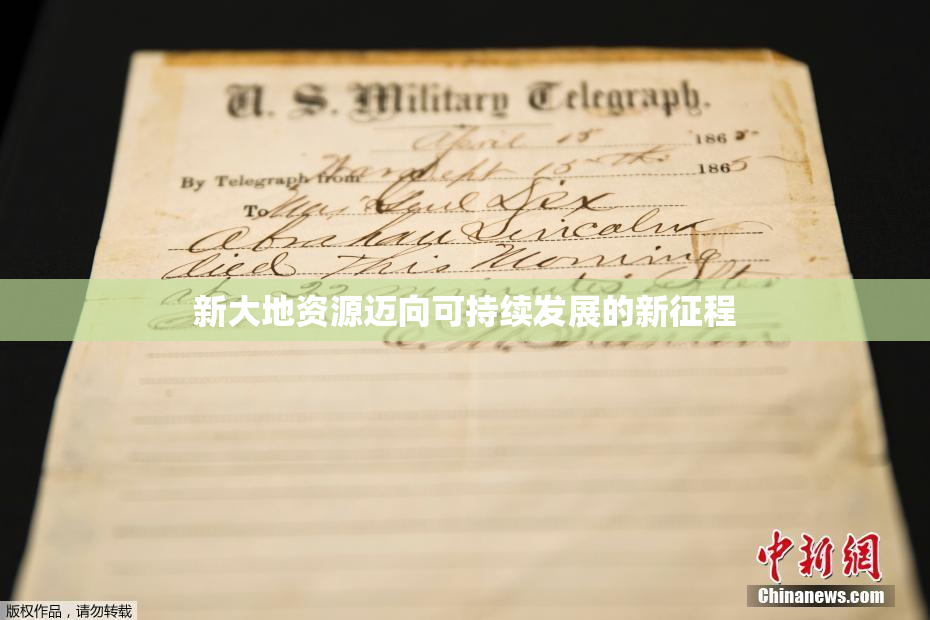 U. S. Military Telegraph.
April 15 1865
By Telegraph from War Dept 15th 1865
To Maj Genl Dix
Abraham Lincoln
died This Morning
at 22 minutes after
新大地资源迈向可持续发展的新征程
E. M. Stanton
中新网
Chinanews.com
版权作品，请勿转载